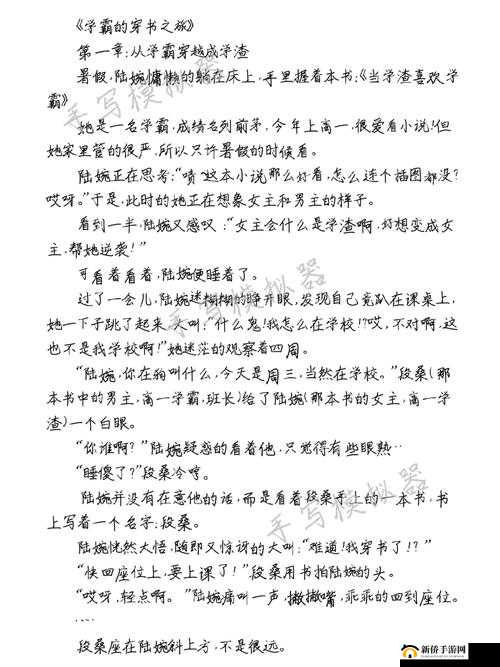 《学霸的穿书之旅》
第一章：从学霸穿越成学渣
暑假，陆婉慵懒的躺在床上，手里握着本书：《当学渣喜欢学
霸》
她是一名学霸，成绩名列前茅，今年上高一，很爱看小说！但
她家里管的很严，所以只许暑假的时候看。
陆婉正在思考：“啧这本小说那么好看，怎么连个插图都没？
哎呀。”于是，此时的她正在想象女主和男主的样子。
看到一半，陆婉又感叹：“女主会什么是学渣啊，好想变成女
主，帮她逆袭！”
可看着看着，陆婉便睡着了。
过了一会儿，陆婉迷糊糊的睁开眼，发现自己竟趴在课桌上，
她一下子跳了起来，大叫：“什么鬼！我怎么在学校！？哎，不对啊，这
也不是我学校啊！”她迷茫的观察着四周。
“陆婉，你在狗叫什么，今天是周三，当然在学校。”段桑（那
本书中的男主，高一学霸，班长）给了陆婉（那本书的女主，高一学
渣）一个白眼。
“你谁啊？”陆婉疑惑的看着他，只觉得有些眼熟…
“睡傻了？”段桑冷哼。
陆婉并没有在意他的话，而是看着段桑手上的一本书，书
上写着一个名字：段桑。
陆婉恍然大悟，随即又惊讶的大叫：“难道！我穿书了！？”
“快回座位上，要上课了！”段桑用书拍陆婉的头。
“哎呀，轻点啊。”陆婉痛叫一声，撇撇嘴，乖乖的回到座位。
….
段桑座在陆婉斜上方，不是很远。
手写模拟器
手写模拟器
手写模拟器
新侨手游网